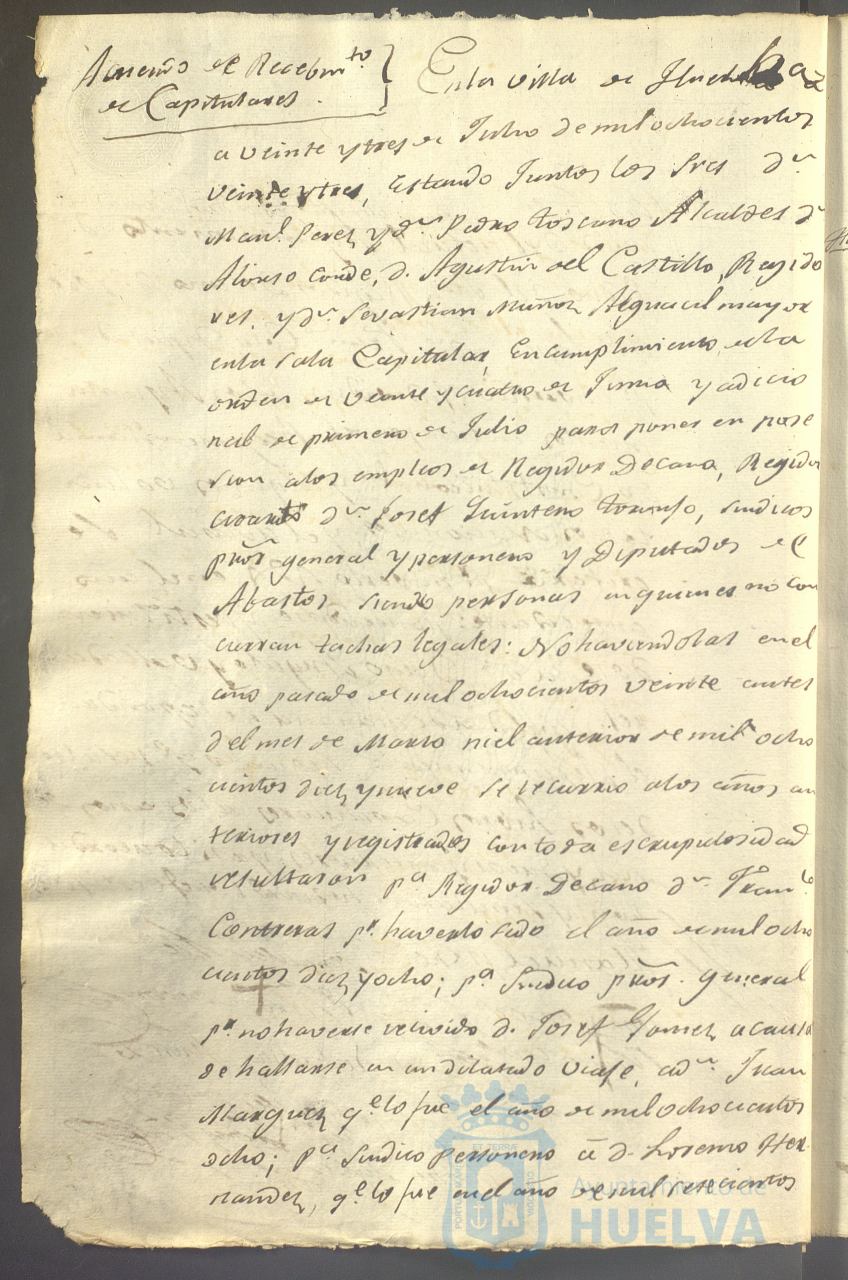 Acuerdo de Recebimto
de Capitulares.
En la villa de Huelba a
a veinte ytres de Julio de mil ochocientos
veinte ytres, Estando Juntos los Sres Dn
Manl. Perez y Dn Pedro toscano Alcaldes Dn
Alonso Conde, D. Agustin del Castillo, Regido
res, y Dn Sevastian Muñoz Alguacil mayor
enla sala Capitular, En cumplimiento dela
orden de veinte y cuatro de Junio y adicio
nal de primero de Julio para poner en pose
sion alos empleos de Regidor Decano, Regidor
cuarto Dn Josef Quintero, Sindicos
pror general y personero y Diputados de
Abastos siendo personas en quienes no con
curran tachas legales: No haviendolas en el
año pasado de mil ochocientos veinte antes
del mes de Marzo ni el anterior de mil ocho
cientos diez ynueve se recurrio alos años an
teriores y registrados con toda escrupulosidad
resultaron pa Regidor Decano Dn Franco
Contreras pr haverlo sido el año de mil ocho
cientos diez yocho; pa Sindico pror. general
pr no haverse recivido D. Josef Gomez a causa
de hallarse en un dilatado viaje, a Dn Juan
Marquez qe lo fue el año de mil ochocientos
ocho; pa Sindico personero a D. Lorenzo Her
nandez, qe lo fue en el año de mil setecientos
PORTUS MARIS ET TERRAE CUSTODIA
Ayuntamiento de
HUELVA